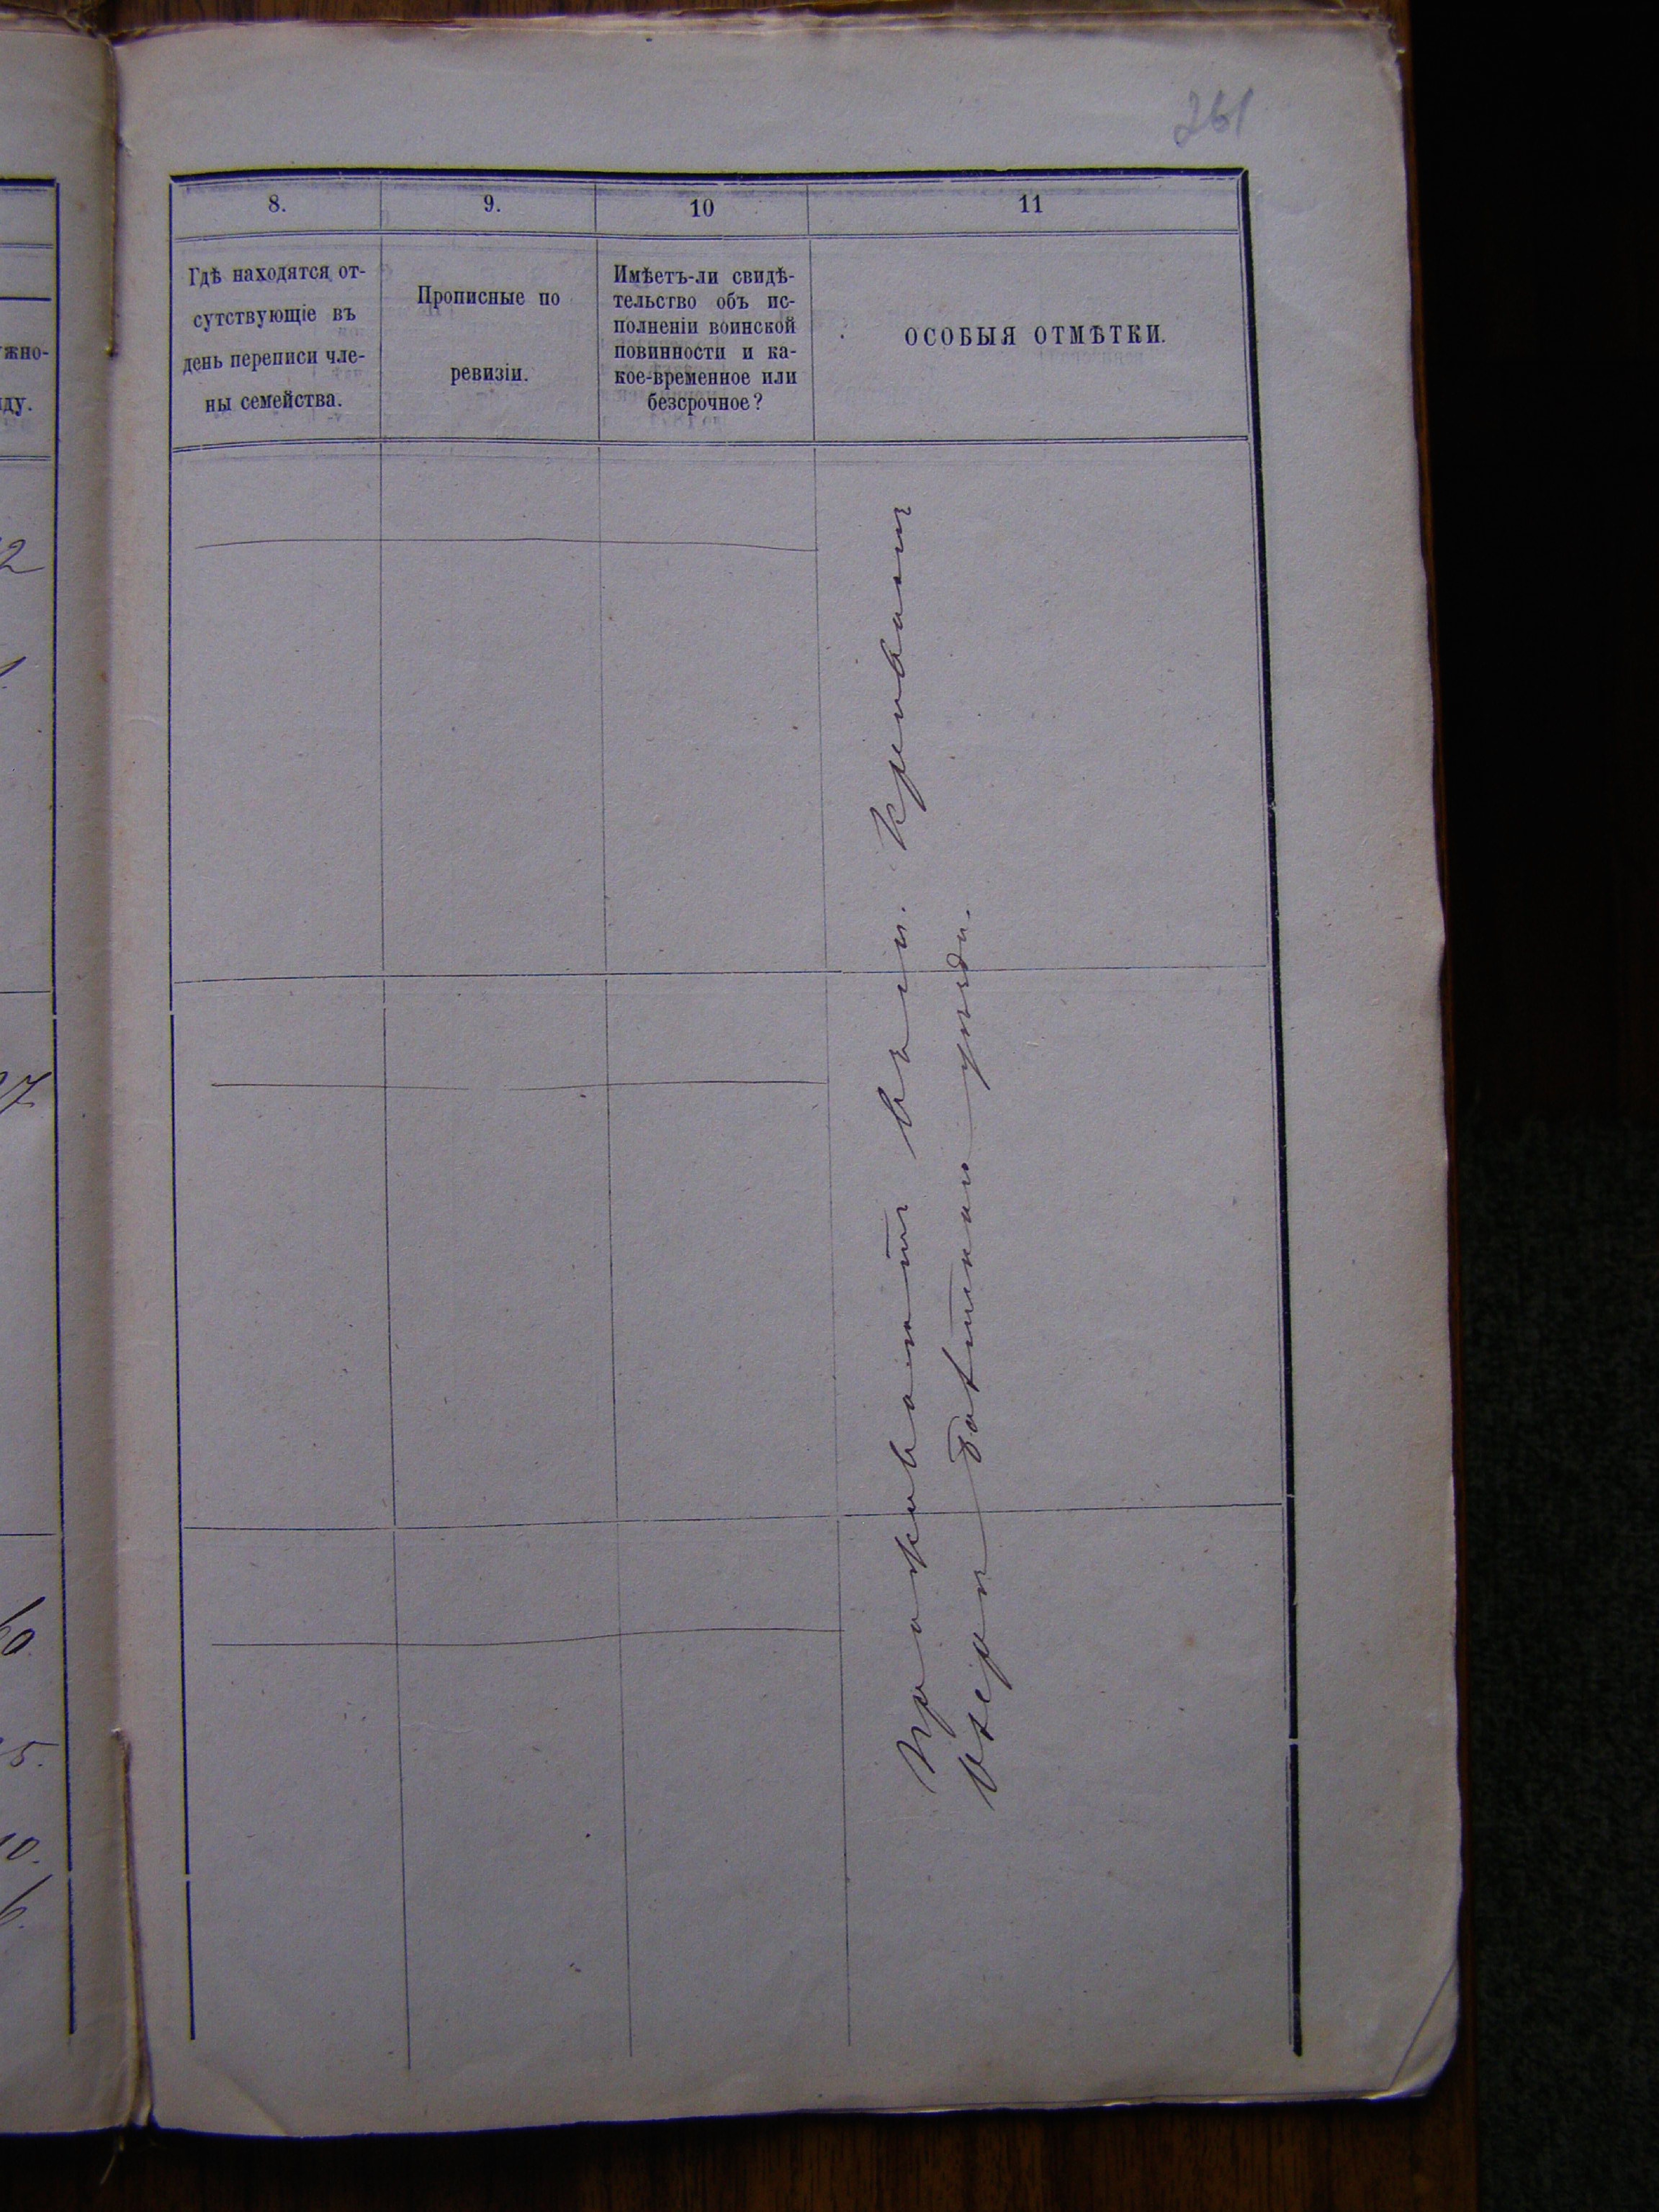 261
8.
9.
10
11
Гдѣ находятся от-
сутствующіе въ
день переписи чле-
ны семейства.
Прописные по
ревизіи.
Имѣетъ-ли свидѣ-
тельство объ ис-
полненіи воинской
повинности и ка-
кое-временное или
безсрочное?
ОСОБЫЯ ОТМѢТКИ.
Проживаютъ въ им.
Озеро уѣзда.
жно-
ду.
2
7
60
5.
10.
6.